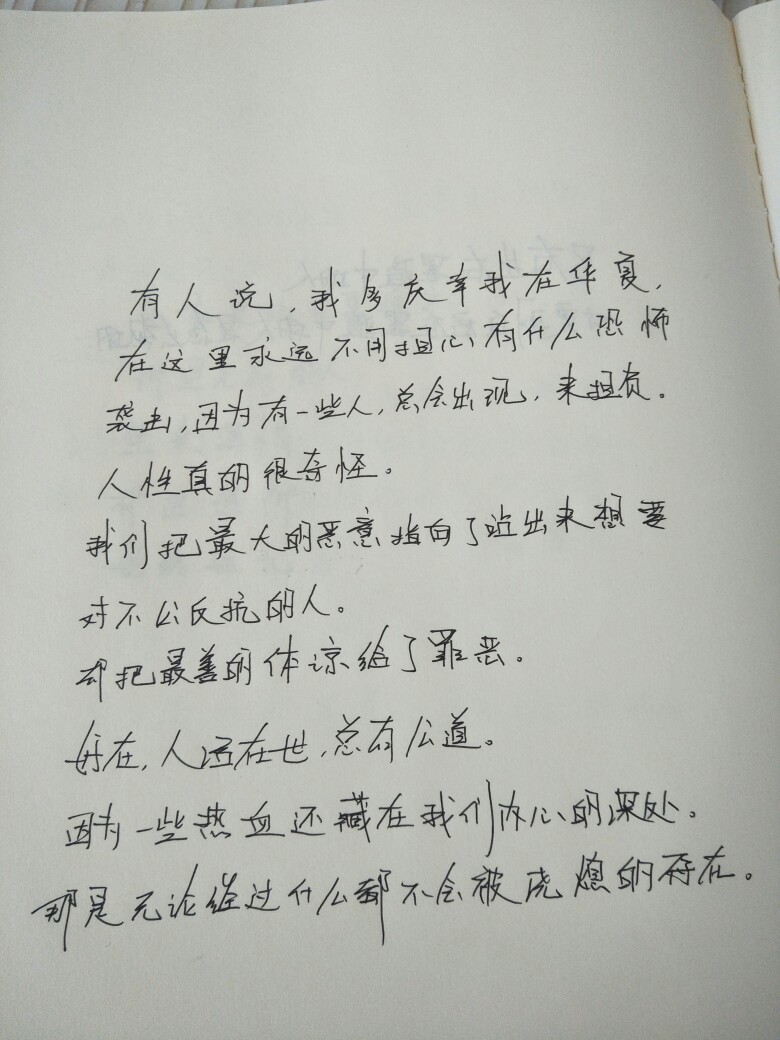 有人说,我多庆幸我在华夏,
在这里永远不用担心有什么恐怖
袭击,因为有一些人,总会出现,来担负。
人性真的很奇怪。
我们把最大的恶意指向了站出来想要
对不公反抗的人。
却把最善的体谅给了罪恶。
好在,人活在世,总有公道。
因为一些热血还藏在我们内心的深处。
那是无论经过什么都不会被浇熄的存在。